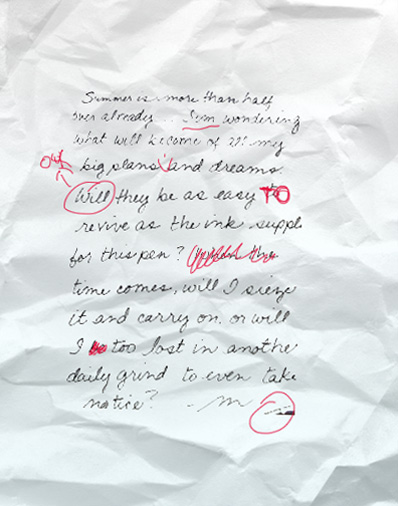 Summer is more than half
over already... I'm wondering
what will become of all my
Out big plans and dreams.
Will they be as easy TO
revive as the ink suppl
for this pen? When the
time comes, will I sieze
it and carry on, or will
I be too lost in anothe
daily grind to even take
notice? - m